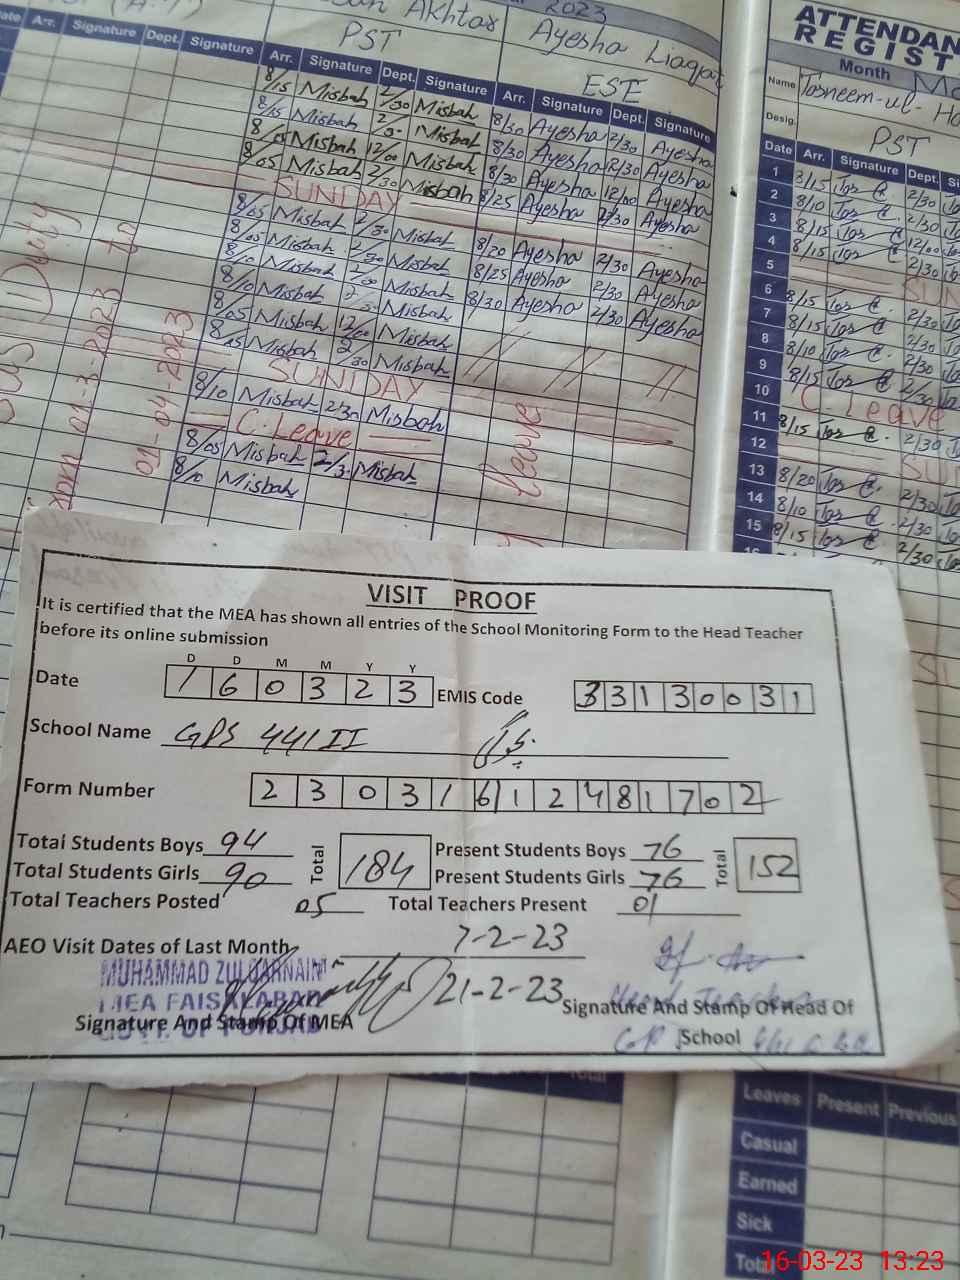 2023
Akhtar Ayesha Liaqat
PST
ESE
ATTENDAN
REGIST
Month
Name Tasneem-ul-
Desig. PST
Arr. Signature Dept. Signature Arr. Signature Dept. Signature Arr. Signature Dept. Signature
Date Arr. Signature Dept.
8/15 Misbah 2/30 Misbah 8/30 Ayesha 2/30 Ayesha
8/05 Misbah Misbah 8/30 Ayesha 2/30 Ayesha
8/05 Misbah 12/00 Misbah 8/30 Ayesha 12/00 Ayesha
8/05 Misbah 2/30 Misbah 8/25 Ayesha 2/30 Ayesha
SUNDAY
8/05 Misbah 2/30 Misbah 8/20 Ayesha 2/30 Ayesha
8/05 Misbah 2/30 Misbah 8/25 Ayesha 2/30 Ayesha
8/10 Misbah Misbah 8/30 Ayesha 2/30 Ayesha
8/10 Misbah Misbah
8/05 Misbah 12/00 Misbah
Misbah 2/30 Misbah
SUNDAY
8/10 Misbah 2/30 Misbah
C. Leave
8/05 Misbah 2/30 Misbah
8/10 Misbah
Duty
from 01-3-2023 to
01-04-2023
leave
1 8/15 2/30
2 8/10 2/30
3 8/15 12/00
4 8/15 2/30
5 SUN
6 8/15 2/30
7 8/15 2/30
8 8/10 2/30
9 8/15 2/30
10 C. Leave
11 8/15 2/30
12 SUN
13 8/20 2/30
14 8/10 2/30
15 8/15 2/30
16
VISIT PROOF
It is certified that the MEA has shown all entries of the School Monitoring Form to the Head Teacher
before its online submission
D D M M Y Y
Date 1 6 0 3 2 3 EMIS Code 3 3 1 3 0 0 3 1
School Name GPS 441 II
Form Number 2 3 0 3 1 6 1 2 4 8 1 7 0 2
Total Students Boys 94 Total 184 Present Students Boys 76 Total 152
Total Students Girls 90 Present Students Girls 76
Total Teachers Posted 05 Total Teachers Present 01
AEO Visit Dates of Last Month 7-2-23
21-2-23
MUHAMMAD ZULQARNAIN
MEA FAISALABAD
GOVT. OF PUNJAB
Signature And Stamp Of MEA
Signature And Stamp Of Head Of
School
Total
Leaves Present Previous
Casual
Earned
Sick
Total
16-03-23 13:23